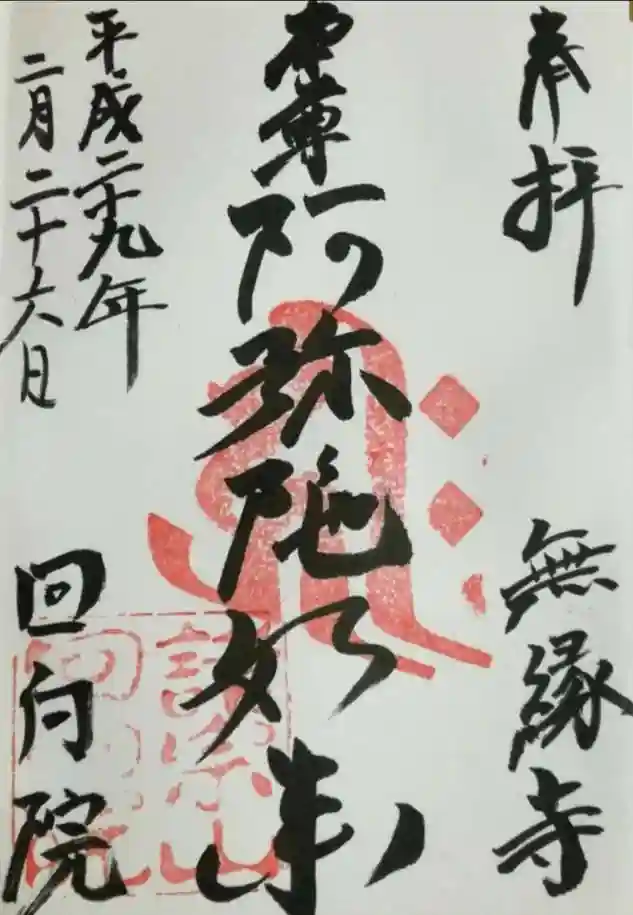 奉拝
無縁寺
本尊阿弥陀如来
平成二十九年
二月二十六日
回向院
諸宗山
回向院